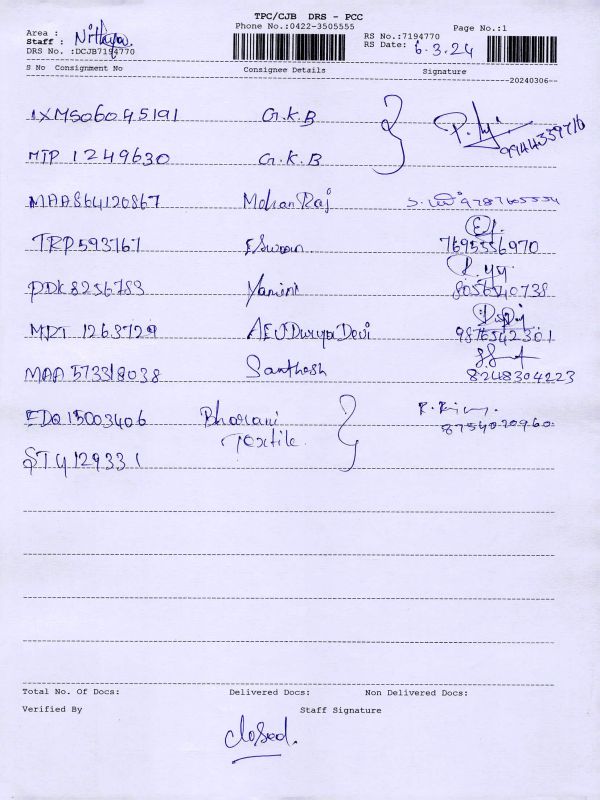 TPC/CJB DRS - PCC
Phone No.:0422-3505555
Page No.:1
Area :
Staff : Nithya
DRS No. :DCJB7194770
RS No.:7194770
RS Date: 6.3.24
S No Consignment No Consignee Details Signature
20240306
IXMS06045191 G.K.B
MTP 1249630 G.K.B 9944339716
MAA864120867 MohanRaj 9787665554
TRP593767 7695556970
PDK8256783 Yamini 8056540738
MDT 1263729 9876542301
MAA 573318038 Santhosh 8248304223
EDQ15003406 Bharani
Textile. 8754020960
STU129331
Total No. Of Docs: Delivered Docs: Non Delivered Docs:
Verified By Staff Signature
closed.